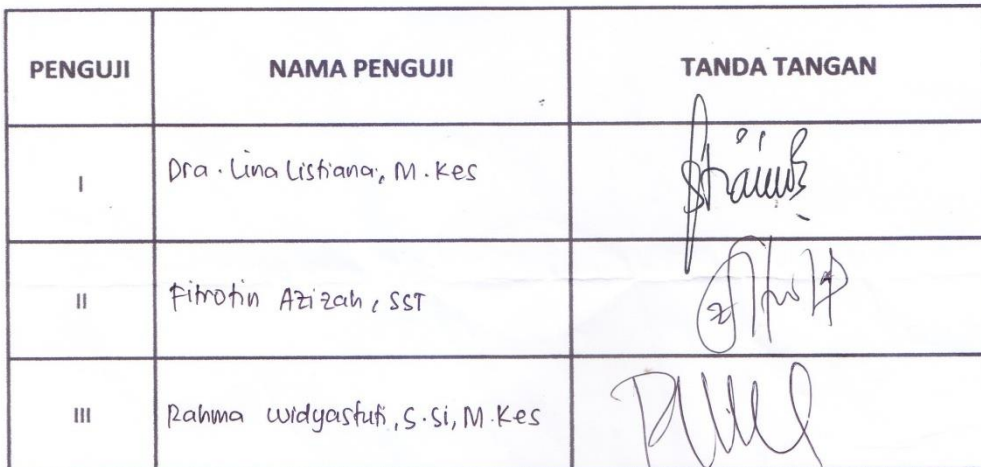 PENGUJI NAMA PENGUJI TANDA TANGAN
I Dra. Lina Listiana, M.Kes
II Fitrotin Azizah, SST
III Rahma Widyastuti, S.Si, M.Kes